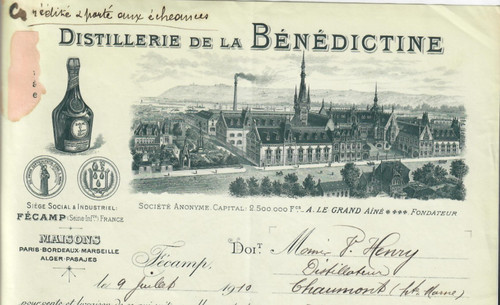 crédité & porté aux échéances
DISTILLERIE DE LA BÉNÉDICTINE
SIÈGE SOCIAL & INDUSTRIEL:
FÉCAMP (SEINE INFRE) FRANCE
MAISONS
PARIS-BORDEAUX-MARSEILLE
ALGER-PASAJES
SOCIÉTÉ ANONYME. CAPITAL: 2.500.000 FCS. A. LE GRAND AÎNÉ **** FONDATEUR
Fécamp,
le 9 juillet 1910
DOIT
Monsieur P. Henry
Distillateur
Chaumont (Hte Marne)